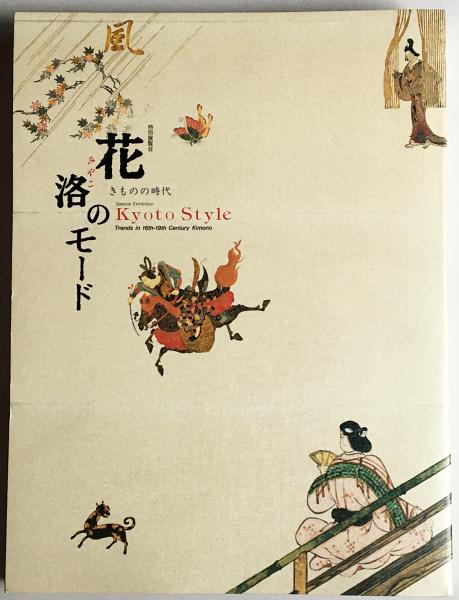 風
特別展覧会
花洛のモード
みやこ
きものの時代
Special Exhibition
Kyoto Style
Trends in 16th-19th Century Kimono